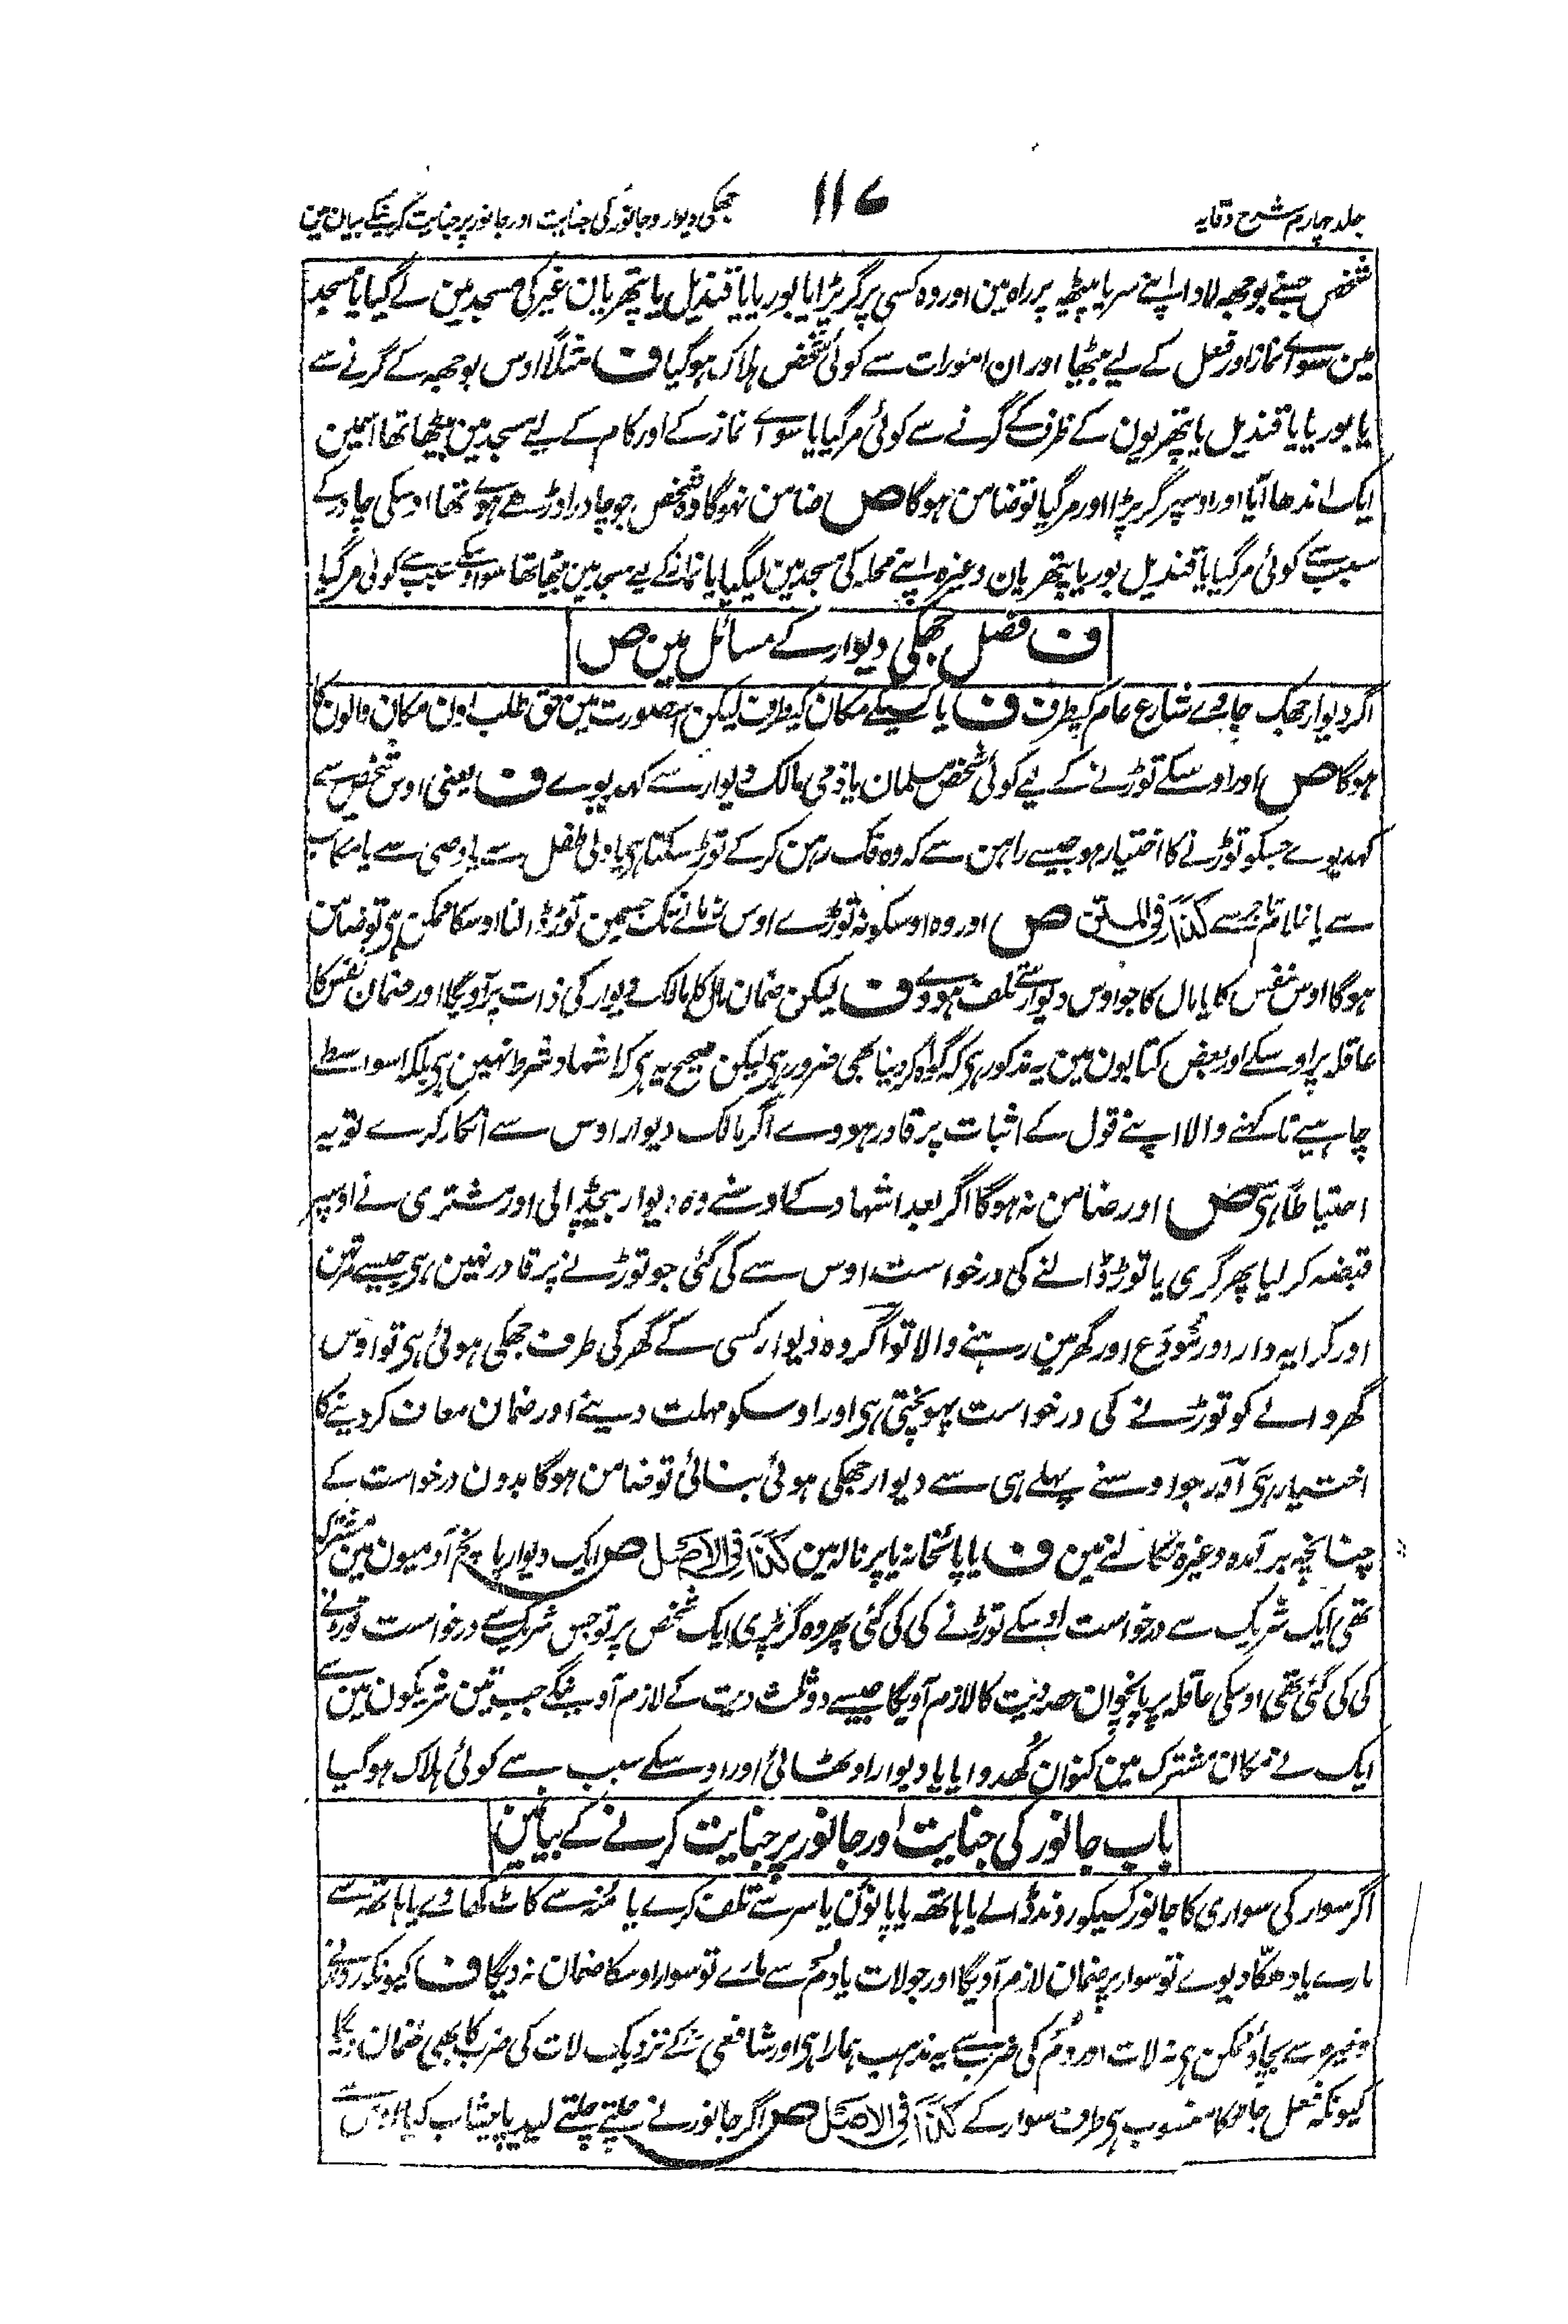 جلد چہارم شرح وقایہ
۱۱۷
جھکی دیوار و جانور کی جنایت اور جانور پر جنایت کرنیکے بیان مین
شخص جسنے بوجھہ لادا اپنے سر یا پیٹھہ پر راہ مین اور وہ کسی پر گر پڑا یا بوریا یا قندیل یا پتھریان غیر کی مسجد مین لے گیا یا مسجد
مین سواے نماز اور فعل کے لیے بیٹھا اور ان امورات سے کوئی شخص ہلاک ہو گیا ف مثلاً اوس بوجھہ کے گرنے سے
یا بوریا یا قندیل یا پتھریون کے ظرف کے گرنے سے کوئی مر گیا یا سواے نماز کے اور کام کے لیے مسجد مین بیٹھا تھا اسمین
ایک اندھا آیا اور اوسپر گر پڑا اور مر گیا تو ضامن ہوگا ص ضامن نہوگا وہ شخص جو چادر اوڑھے ہوے تھا اوسکی چادر کے
سبب سے کوئی مر گیا یا قندیل بوریا پتھریان وغیرہ اپنے محلہ کی مسجد مین لیگیا یا نماز کے لیے مسجد مین بیٹھا تھا سو اوسکے سبب سے کوئی مر گیا
ف فصل جھکی دیوار کے مسائل مین ص
اگر دیوار جھک جاوے شارع عام کیطرف ف یا کسیکے مکان کیطرف لیکن اس صورت مین حق طلب اون مکان والون کا
ہوگا ص اور اوسکے توڑنے کے لیے کوئی شخص مسلمان یا ذمی مالک دیوار سے کہدیوے ف یعنی اوس شخص سے
کہدیوے جسکو توڑنے کا اختیار ہو جیسے راہن سے کہ وہ فک رہن کرکے توڑ سکتا ہی یا ولی طفل سے یا وصی سے یا مکاتب
سے یا غلام تاجر سے کذا فی المتن ص اور وہ اوسکو نہ توڑے اوس زمانے تک جسمین توڑ ڈالنا اوسکا ممکن ہی تو ضامن
ہوگا اوس نفس کا یا مال کا جو اوس دیوار سے تلف ہووے ف لیکن ضمان مال کا مالک دیوار کی ذات پر آویگا اور ضمان نفس کا
عاقلہ پر اوسکے اور بعض کتابون مین یہ مذکور ہی کہ گواہ کر دینا بھی ضرور ہی لیکن صحیح یہ ہی کہ اشہاد شرط نہین ہی بلکہ اسواسطے
چاہیے تا کہنے والا اپنے قول کے اثبات پر قادر ہووے اگر مالک دیوار اوس سے انکار کرے تو یہ
احتیاطاً ہی ص اور ضامن نہ ہوگا اگر بعد اشہاد کے اوسنے وہ دیوار بیچ ڈالی اور مشتری نے اوسپر
قبضہ کر لیا پھر گری یا توڑ ڈالنے کی درخواست اوس سے کی گئی جو توڑنے پر قادر نہین ہی جیسے مرتہن
اور کرایہ دار اور مُودَع اور گھر مین رہنے والا تو اگر وہ دیوار کسی کے گھر کی طرف جھکی ہوئی ہی تو اوس
گھر والے کو توڑنے کی درخواست پہونچتی ہی اور اوسکو مہلت دینے اور ضمان معاف کر دینے کا
اختیار ہی اور جو اوسنے پہلے ہی سے دیوار جھکی ہوئی بنائی تو ضامن ہوگا بدون درخواست کے
چنانچہ برآمدہ وغیرہ نکالنے مین ف یا پائخانہ یا پرنالہ مین کذا فی الاصل ص ایک دیوار پانچ آدمیون مین مشترک
تھی ایک شریک سے درخواست اوسکے توڑنے کی کی گئی پھر وہ گر پڑی ایک شخص پر تو جس شریک سے درخواست توڑنے
کی کی گئی تھی اوسکی عاقلہ پر پانچوان حصہ دیت کا لازم آویگا جیسے دو ثلث دیت کے لازم آوینگے جب تین شریکون مین سے
ایک نے مکان مشترک مین کنوان کُھدوایا یا دیوار اوٹھائی اور اوسکے سبب سے کوئی ہلاک ہو گیا
باب جانور کی جنایت اور جانور پر جنایت کرنے کے بیان مین
اگر سوار کی سواری کا جانور کسیکو روند ڈالے یا ہاتھہ یا پانون یا سر سے تلف کرے یا مُنہ سے کاٹ کھاوے یا ہاتھہ سے
مارے یا دھکّا دیوے تو سوار پر ضمان لازم آویگا اور جو لات یا دُم سے مارے تو سوار اوسکا ضمان نہ دیگا ف کیونکہ روندنے
وغیرہ سے بچاؤ ممکن ہی نہ لات اور دُم کی ضرب سے یہ مذہب ہمارا ہی اور شافعی رح کے نزدیک لات کی ضرب کا بھی ضمان دیگا
کیونکہ فعل جانور کا منسوب ہی طرف سوار کے کذا فی الاصل ص اگر جانور نے چلتے چلتے لید یا پیشاب کیا اوس سے